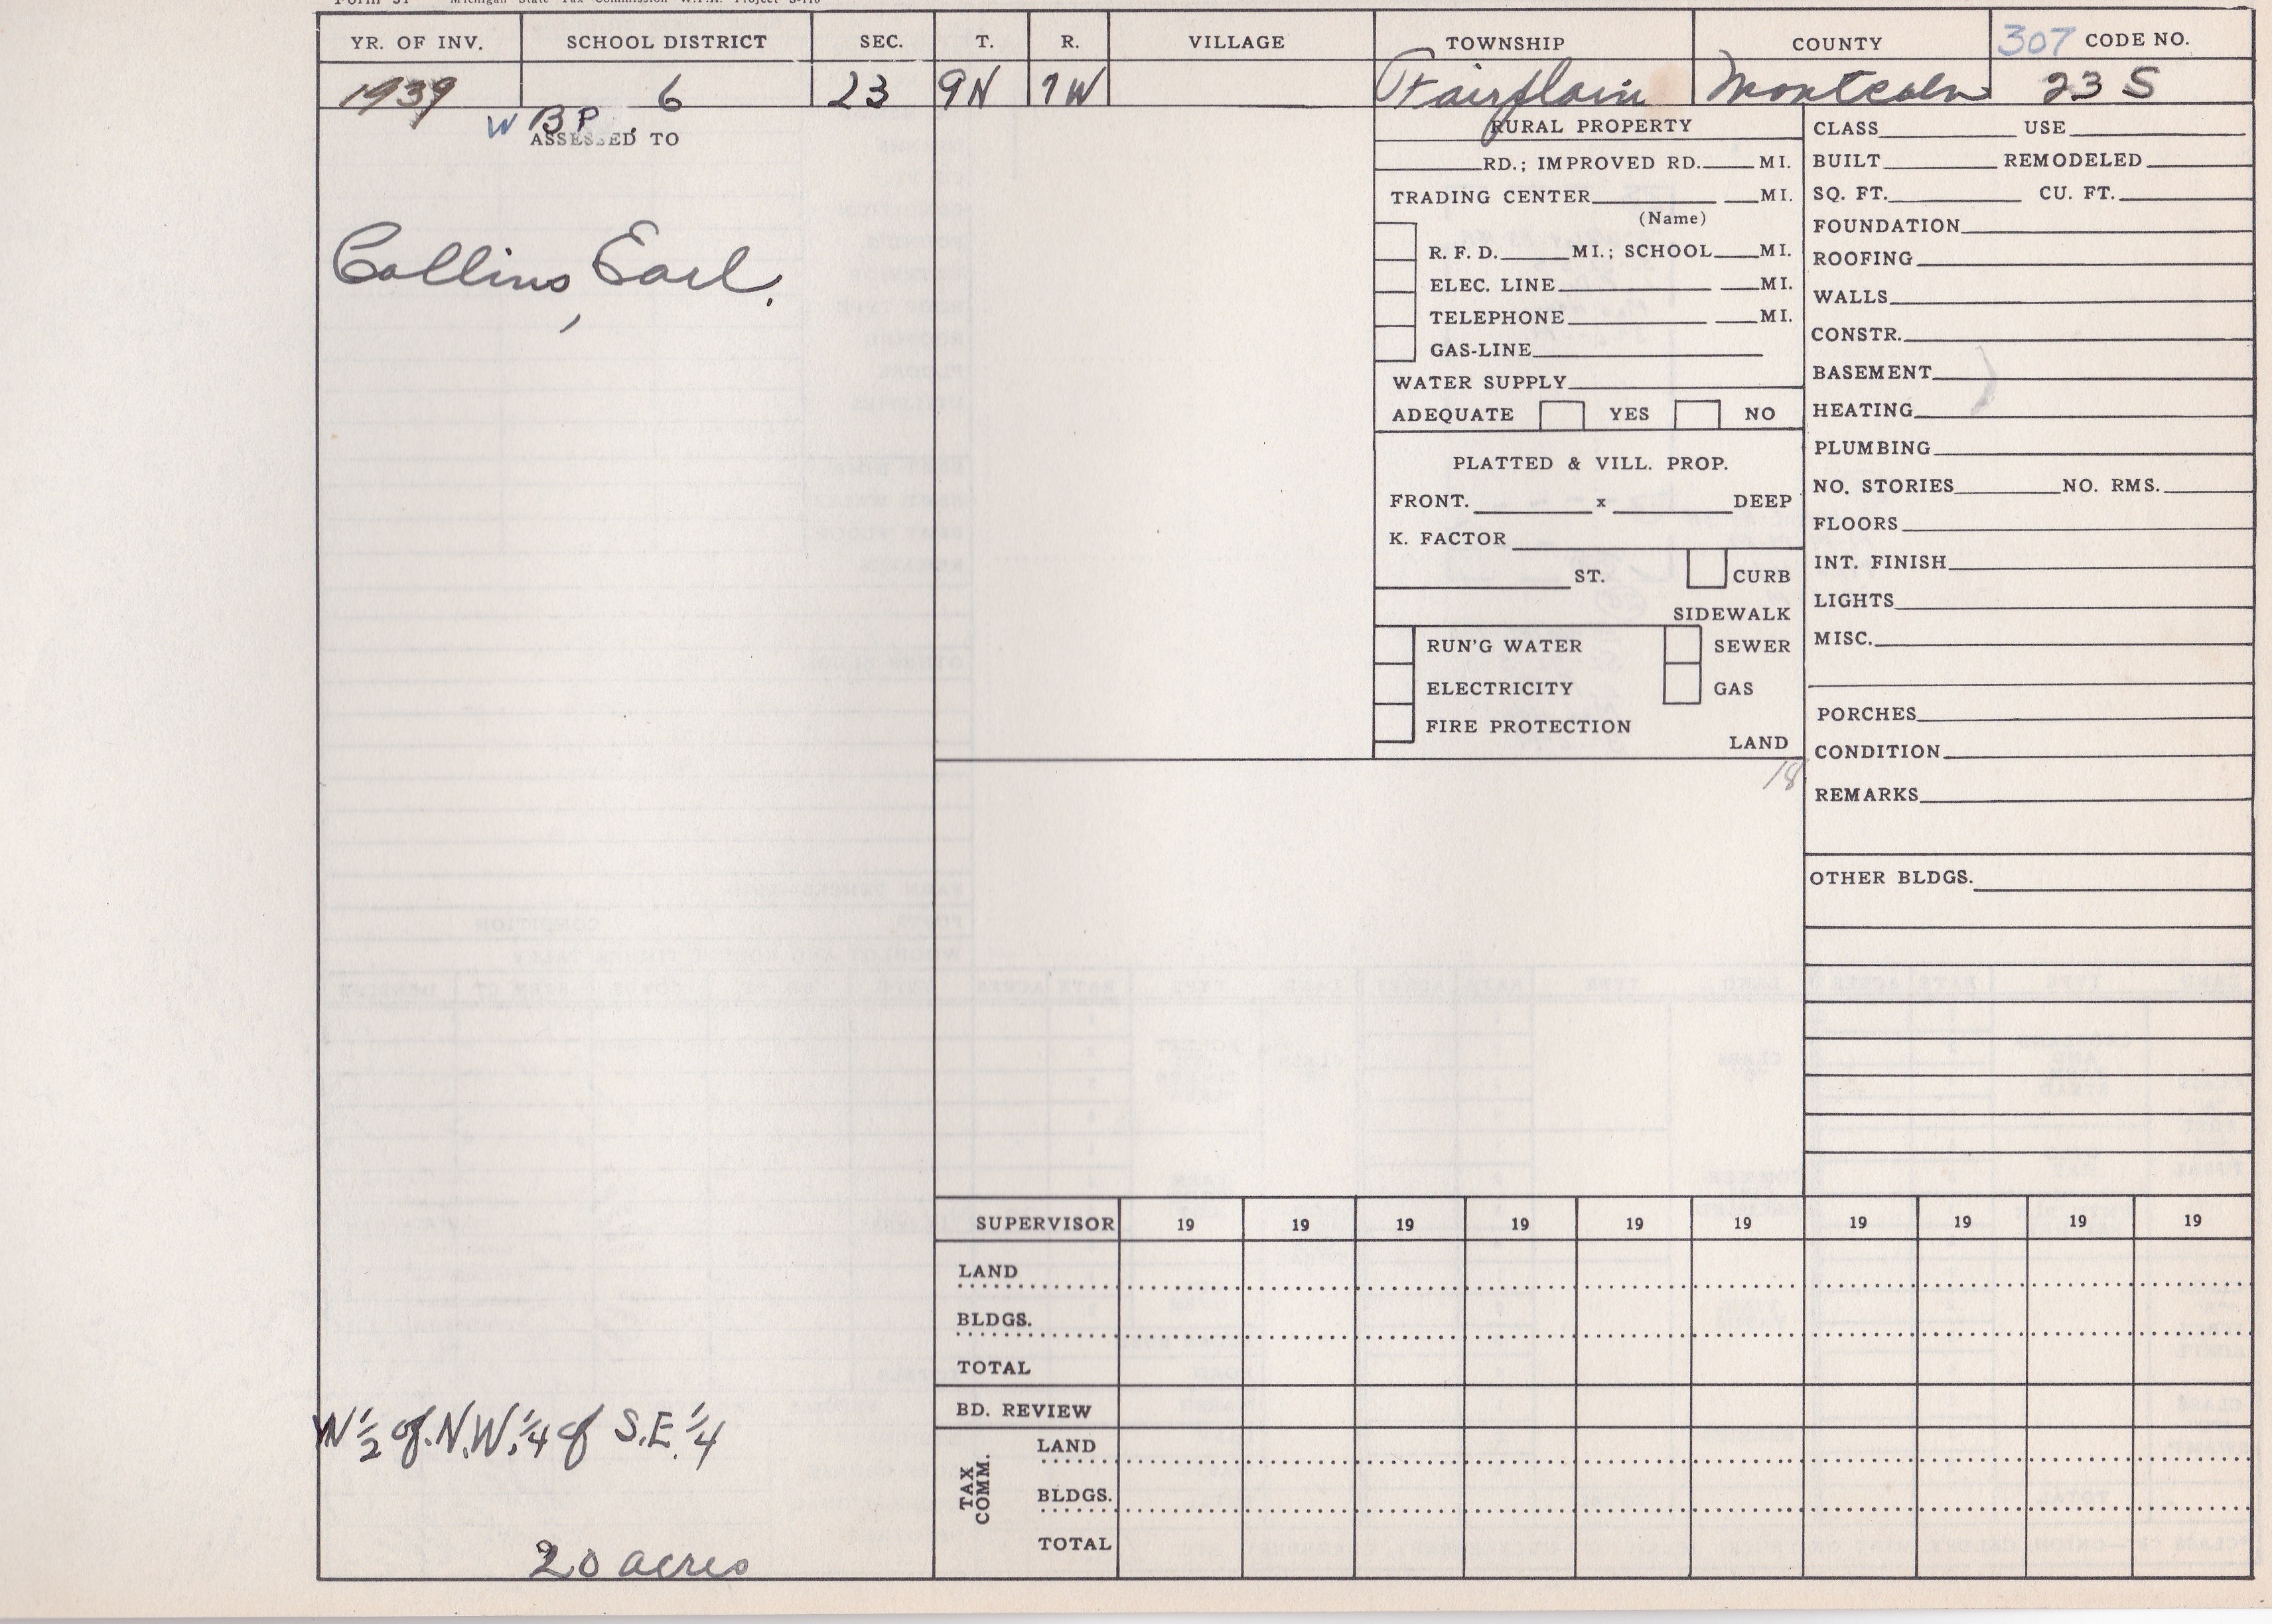 Form 31 Michigan State Tax Commission W.P.A. Project S-110
YR. OF INV. SCHOOL DISTRICT SEC. T. R. VILLAGE TOWNSHIP COUNTY 307 CODE NO.
1939 6 23 9N 7W Fairplain Montcalm 23 S
W B P.
ASSESSED TO
Collins, Earl.
W 1/2 of N.W. 1/4 of S.E. 1/4
20 acres
RURAL PROPERTY
RD.; IMPROVED RD. MI.
TRADING CENTER MI.
(Name)
R. F. D. MI.; SCHOOL MI.
ELEC. LINE MI.
TELEPHONE MI.
GAS-LINE
WATER SUPPLY
ADEQUATE YES NO
PLATTED & VILL. PROP.
FRONT. x DEEP
K. FACTOR
ST. CURB
SIDEWALK
RUN'G WATER SEWER
ELECTRICITY GAS
FIRE PROTECTION
LAND
18
CLASS USE
BUILT REMODELED
SQ. FT. CU. FT.
FOUNDATION
ROOFING
WALLS
CONSTR.
BASEMENT
HEATING
PLUMBING
NO. STORIES NO. RMS.
FLOORS
INT. FINISH
LIGHTS
MISC.
PORCHES
CONDITION
REMARKS
OTHER BLDGS.
SUPERVISOR 19 19 19 19 19 19 19 19 19 19
LAND
BLDGS.
TOTAL
BD. REVIEW
TAX COMM.
LAND
BLDGS.
TOTAL